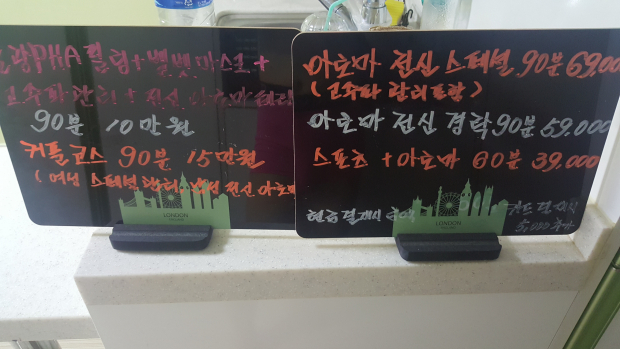 PHA 필링 + 벨벳마스크 +
고주파 관리 + 전신 아로마
90분 10만원
커플코스 90분 15만원
( 여성 스페셜 관리 전신 아로마
LONDON
아로마 전신 스페셜 90분 69,000
( 고주파 관리포함 )
아로마 전신 경락 90분 59,000
스포츠 + 아로마 60분 39,000
현금결제시 금액
카드 결제시
5,000 추가
LONDON